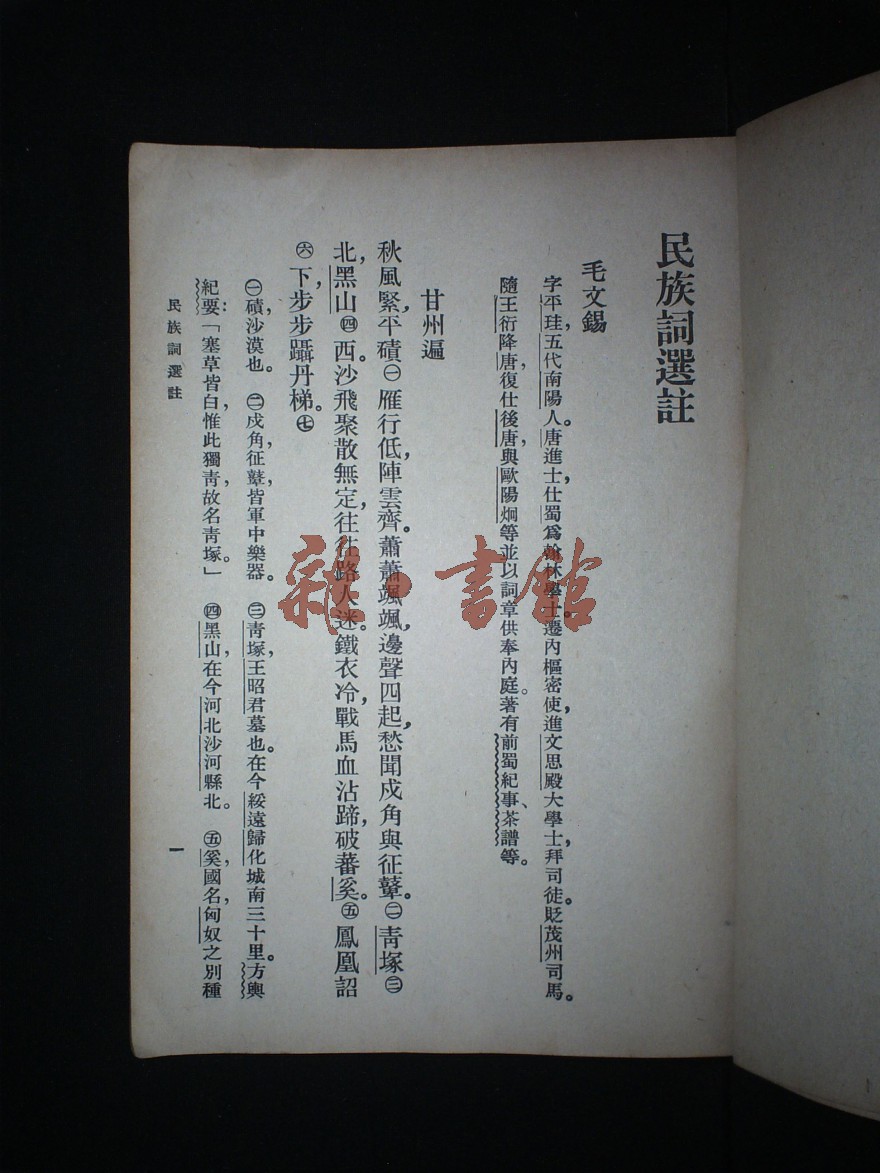 民族詞選註
毛文錫
字平珪，五代南陽人。唐進士，仕蜀爲翰林學士。遷內樞密使，進文思殿大學士，拜司徒。貶茂州司馬。
隨王衍降唐，復仕後唐，與歐陽炯等並以詞章供奉內庭。著有前蜀紀事、茶譜等。
甘州遍
秋風緊，平磧㊀雁行低，陣雲齊。蕭蕭颯颯，邊聲四起，愁聞戍角與征鼙。㊁青塚㊂
北，黑山㊃西。沙飛聚散無定，往往路人迷。鐵衣冷，戰馬血沾蹄，破蕃奚。㊄鳳凰詔
㊅下，步步躡丹梯。㊆
㊀磧，沙漠也。㊁戍角征鼙，皆軍中樂器。㊂青塚，王昭君墓也。在今綏遠歸化城南三十里。方輿
紀要：「塞草皆白，惟此獨青，故名青塚。」㊃黑山，在今河北沙河縣北。㊄奚，國名，匈奴之別種
民族詞選註
一
雜·書館